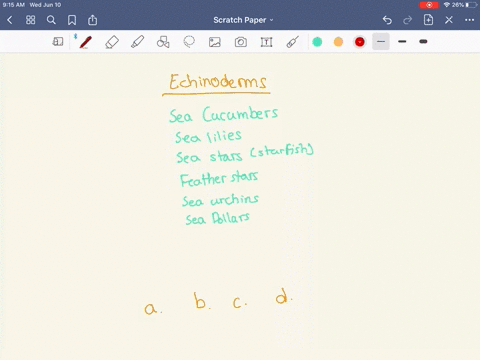 9:15 AM Wed Jun 10
26%
Scratch Paper
Echinoderms
Sea Cucumbers
Sea lilies
Sea stars (starfish)
Feather stars
Sea urchins
Sea Dollars
a. b. c. d.